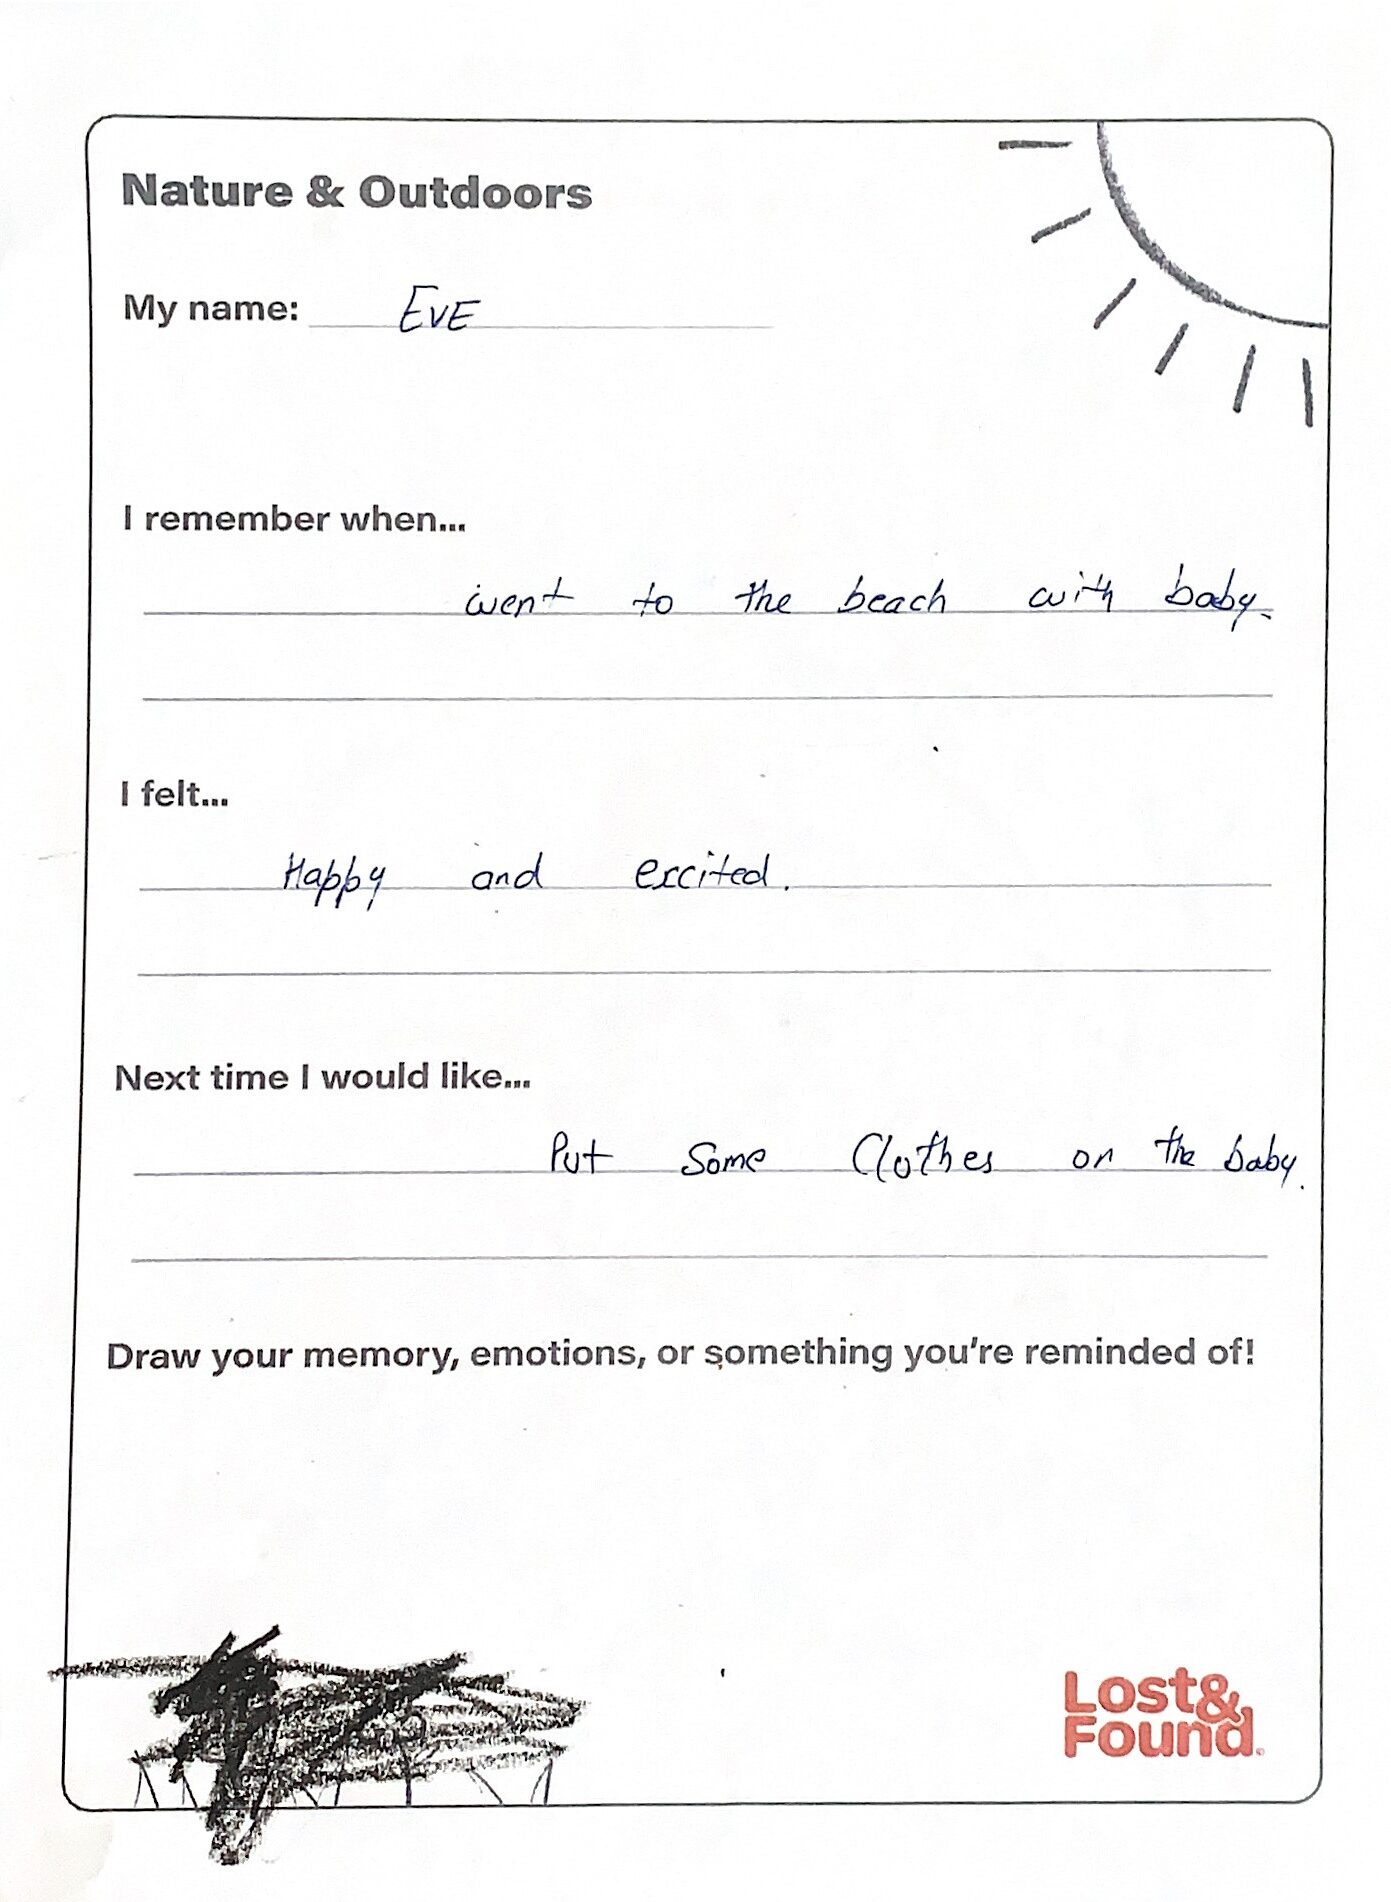 Nature & Outdoors
My name: EVE
I remember when...
went to the beach with baby.
I felt...
Happy and excited.
Next time I would like...
Put Some Clothes on the baby.
Draw your memory, emotions, or something you're reminded of!
Lost&
Found